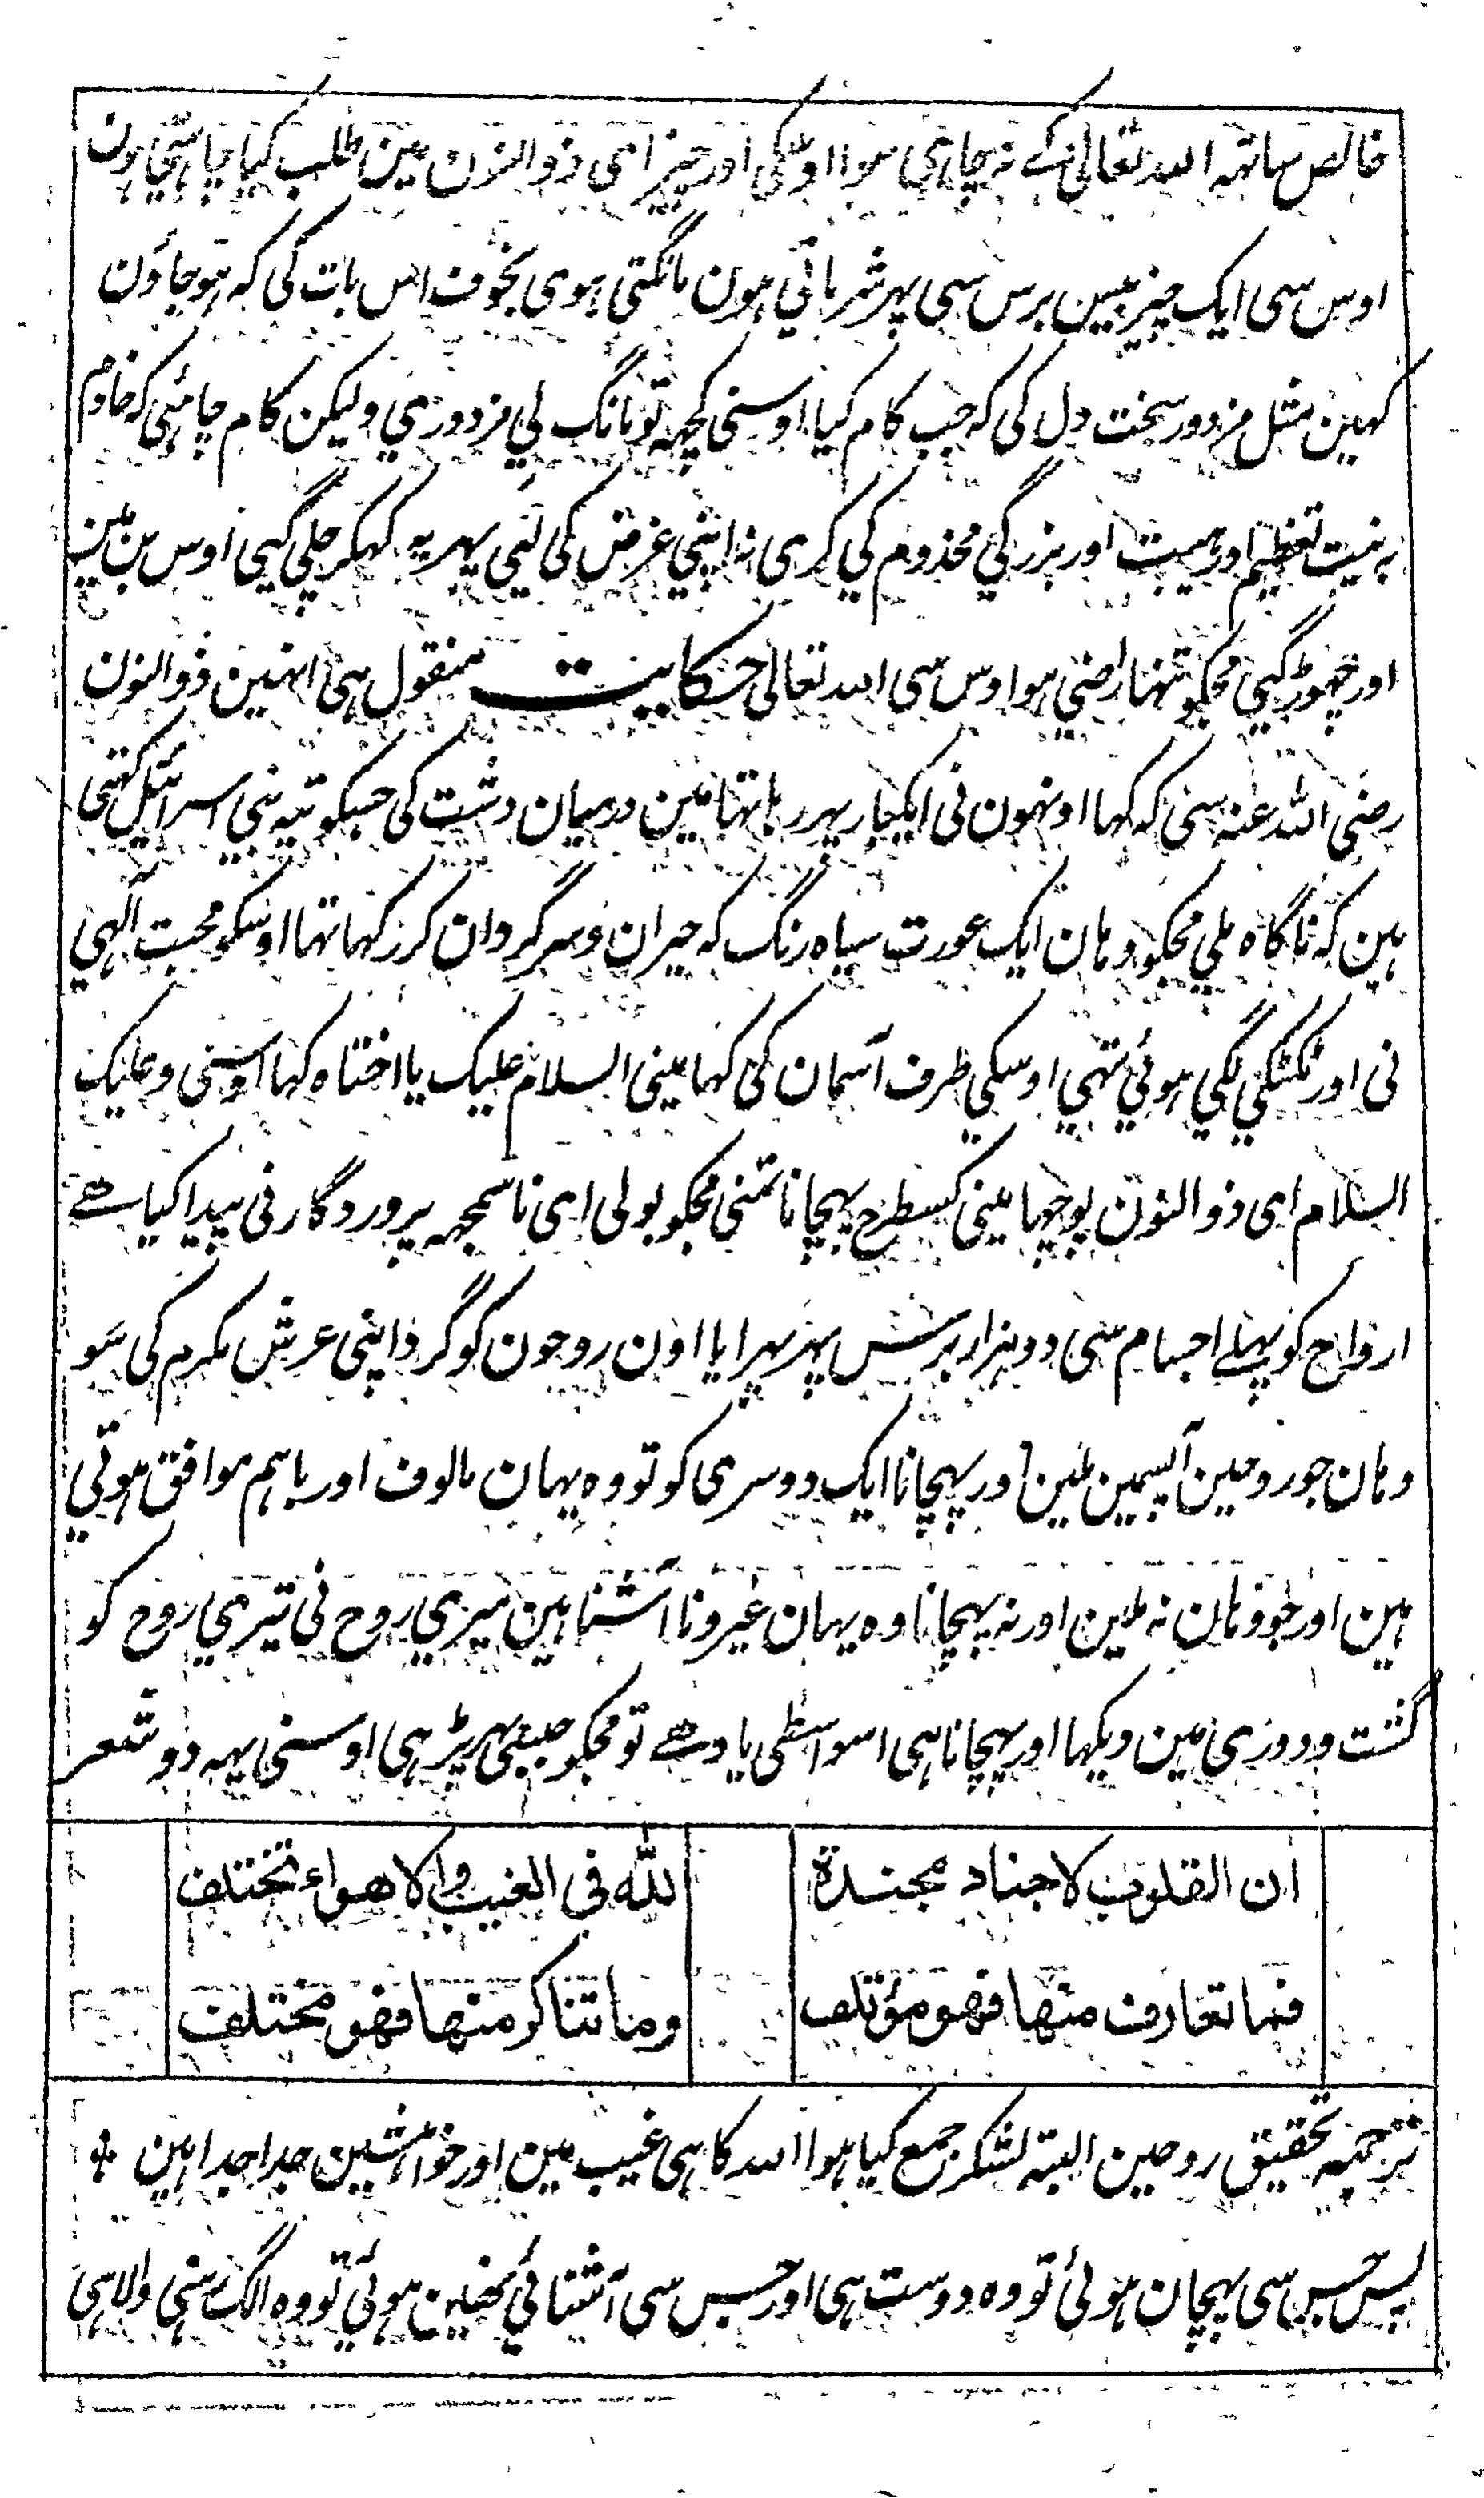 خالص ساتهہ اللہ تعالی کے نہ چاہی سوا اوسکی اور چیز ای ذوالنون مین طلب کیا چاہتی ہون
اوس سی ایک چیز بیس برس سی پہر شرماتی ہون مانگتی ہوی بخوف اس بات کی کہ ہو جاؤن
کہین مثل مزدور سخت دل کی کہ جب کام کیا اوسنی کچہہ تو مانگ لی مزدوری ولیکن کام چاہئی کہ خادم
بہ نیت تعظیم اور ہیبت اور بزرگی مخدوم کی کری نہ اپنی غرض کی لئی پہر یہ کہکر چلی گیی اوس بن مین
اور چہوڑ گیی مجکو تنہا راضی ہو اوس سی اللہ تعالی حکایت منقول ہی انہین ذوالنون
رضی اللہ عنہ سی کہ کہا اونہون نی ایکبار پہر رہا تہا مین درمیان دشت کی جسکو تیہ بنی اسرائیل کہتی
ہین کہ ناگاہ ملی مجکو وہان ایک عورت سیاہ رنگ کہ حیران و سرگردان کر رکہا تہا اوسکو محبت الہی
نی اور ٹکٹکی لگی ہوئی تہی اوسکی طرف آسمان کی کہا مینی السلام علیک یا اختاہ کہا اوسنی وعلیک
السلام ای ذوالنون پوچہا مینی کسطرح پہچانا تمنی مجکو بولی ای ناسمجہہ پروردگار نی پیدا کیا ہے
ارواح کو پہلے اجسام سی دو ہزار برس پہر پہرایا اون روحون کو گرد اپنی عرش مکرم کی سو
وہان جو روحین آپسمین ملین اور پہچانا ایک دوسری کو تو وہ یہان مالوف اور باہم موافق ہوئی
ہین اور جو وہان نہ ملین اور نہ پہچانا وہ یہان غیر و ناآشنا ہین میری روح نی تیری روح کو
گشت و دوری مین دیکہا اور پہچانا ہی اسواسطی یاد ہے تو مجکو پہر پڑہی اوسنی یہہ دو شعر
ان القلوب لاجناد مجندۃ لله فی الغیب والاهواء تختلف
فما تعارف منها فهو مؤتلف وما تناکر منها فهو مختلف
ترجمہ تحقیق روحین البتہ لشکر جمع کیا ہوا اللہ کا ہی غیب مین اور خواہشین جدا جدا ہین
پس جس سی پہچان ہوئی تو وہ دوست ہی اور جس سی آشنائی نہین ہوئی تو وہ الگ رہنی والا ہی